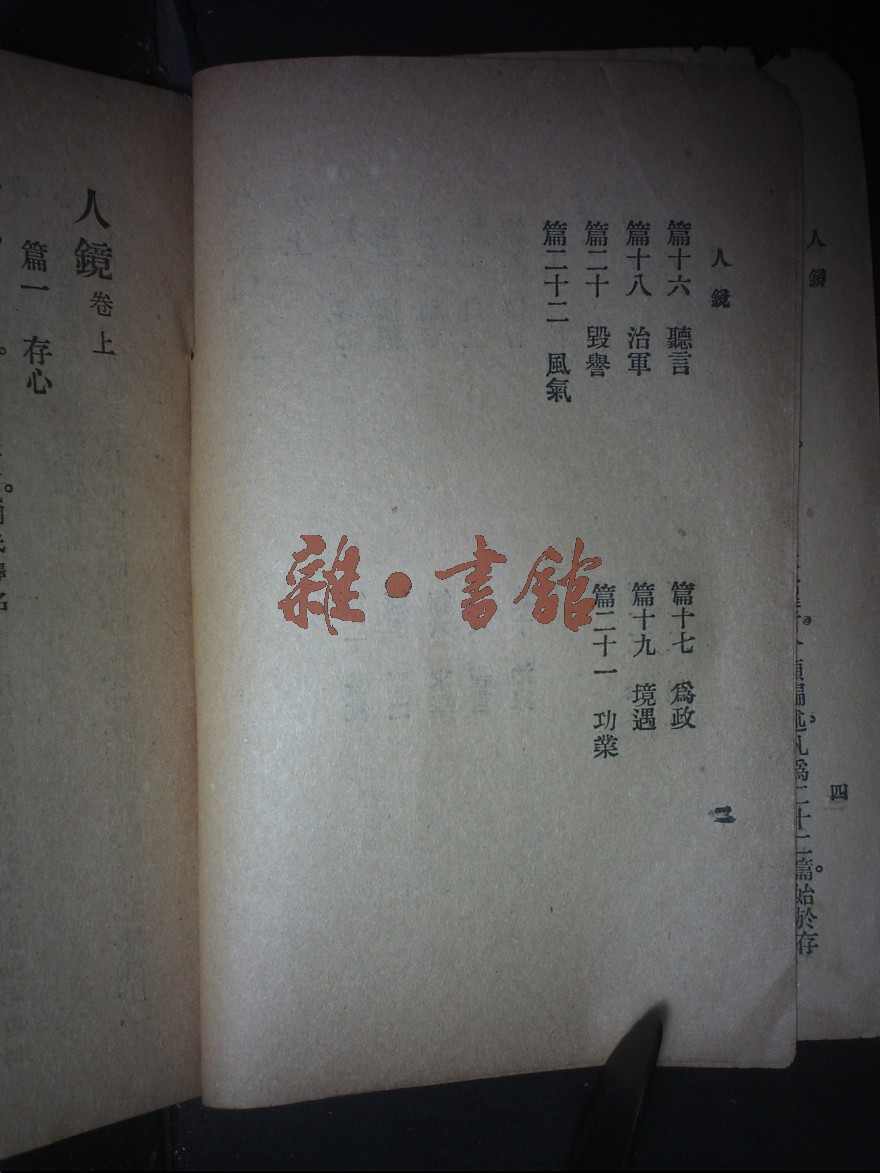 人鏡
四
述凡爲二十二篇。始於存
人鏡
篇十六　聽言
篇十七　爲政
篇十八　治軍
篇十九　境遇
篇二十　毀譽
篇二十一　功業
篇二十二　風氣
二
人鏡卷上
篇一　存心
雜·書館